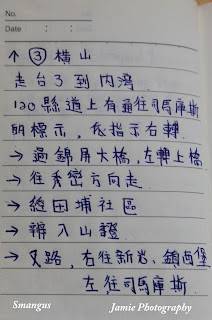 No.
Date : :
↑ ③ 橫山
走台3到內灣
120縣道上有通往司馬庫斯
的標示，依指示右轉
→ 過錦屏大橋，左轉上橋
→ 往秀巒方向走
→ 經田埔社區
→ 辦入山證
→ 叉路，右往新光、鎮西堡
左，往司馬庫斯.
Smangus Jamie Photography